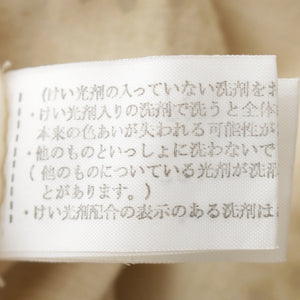 (けい光剤の入っていない洗剤をお
・けい光剤入りの洗剤で洗うと全体
本来の色あいが失われる可能性が
・他のものといっしょに洗わないで
(他のものについている光剤が洗
とがあります。)
・けい光剤配合の表示のある洗剤は